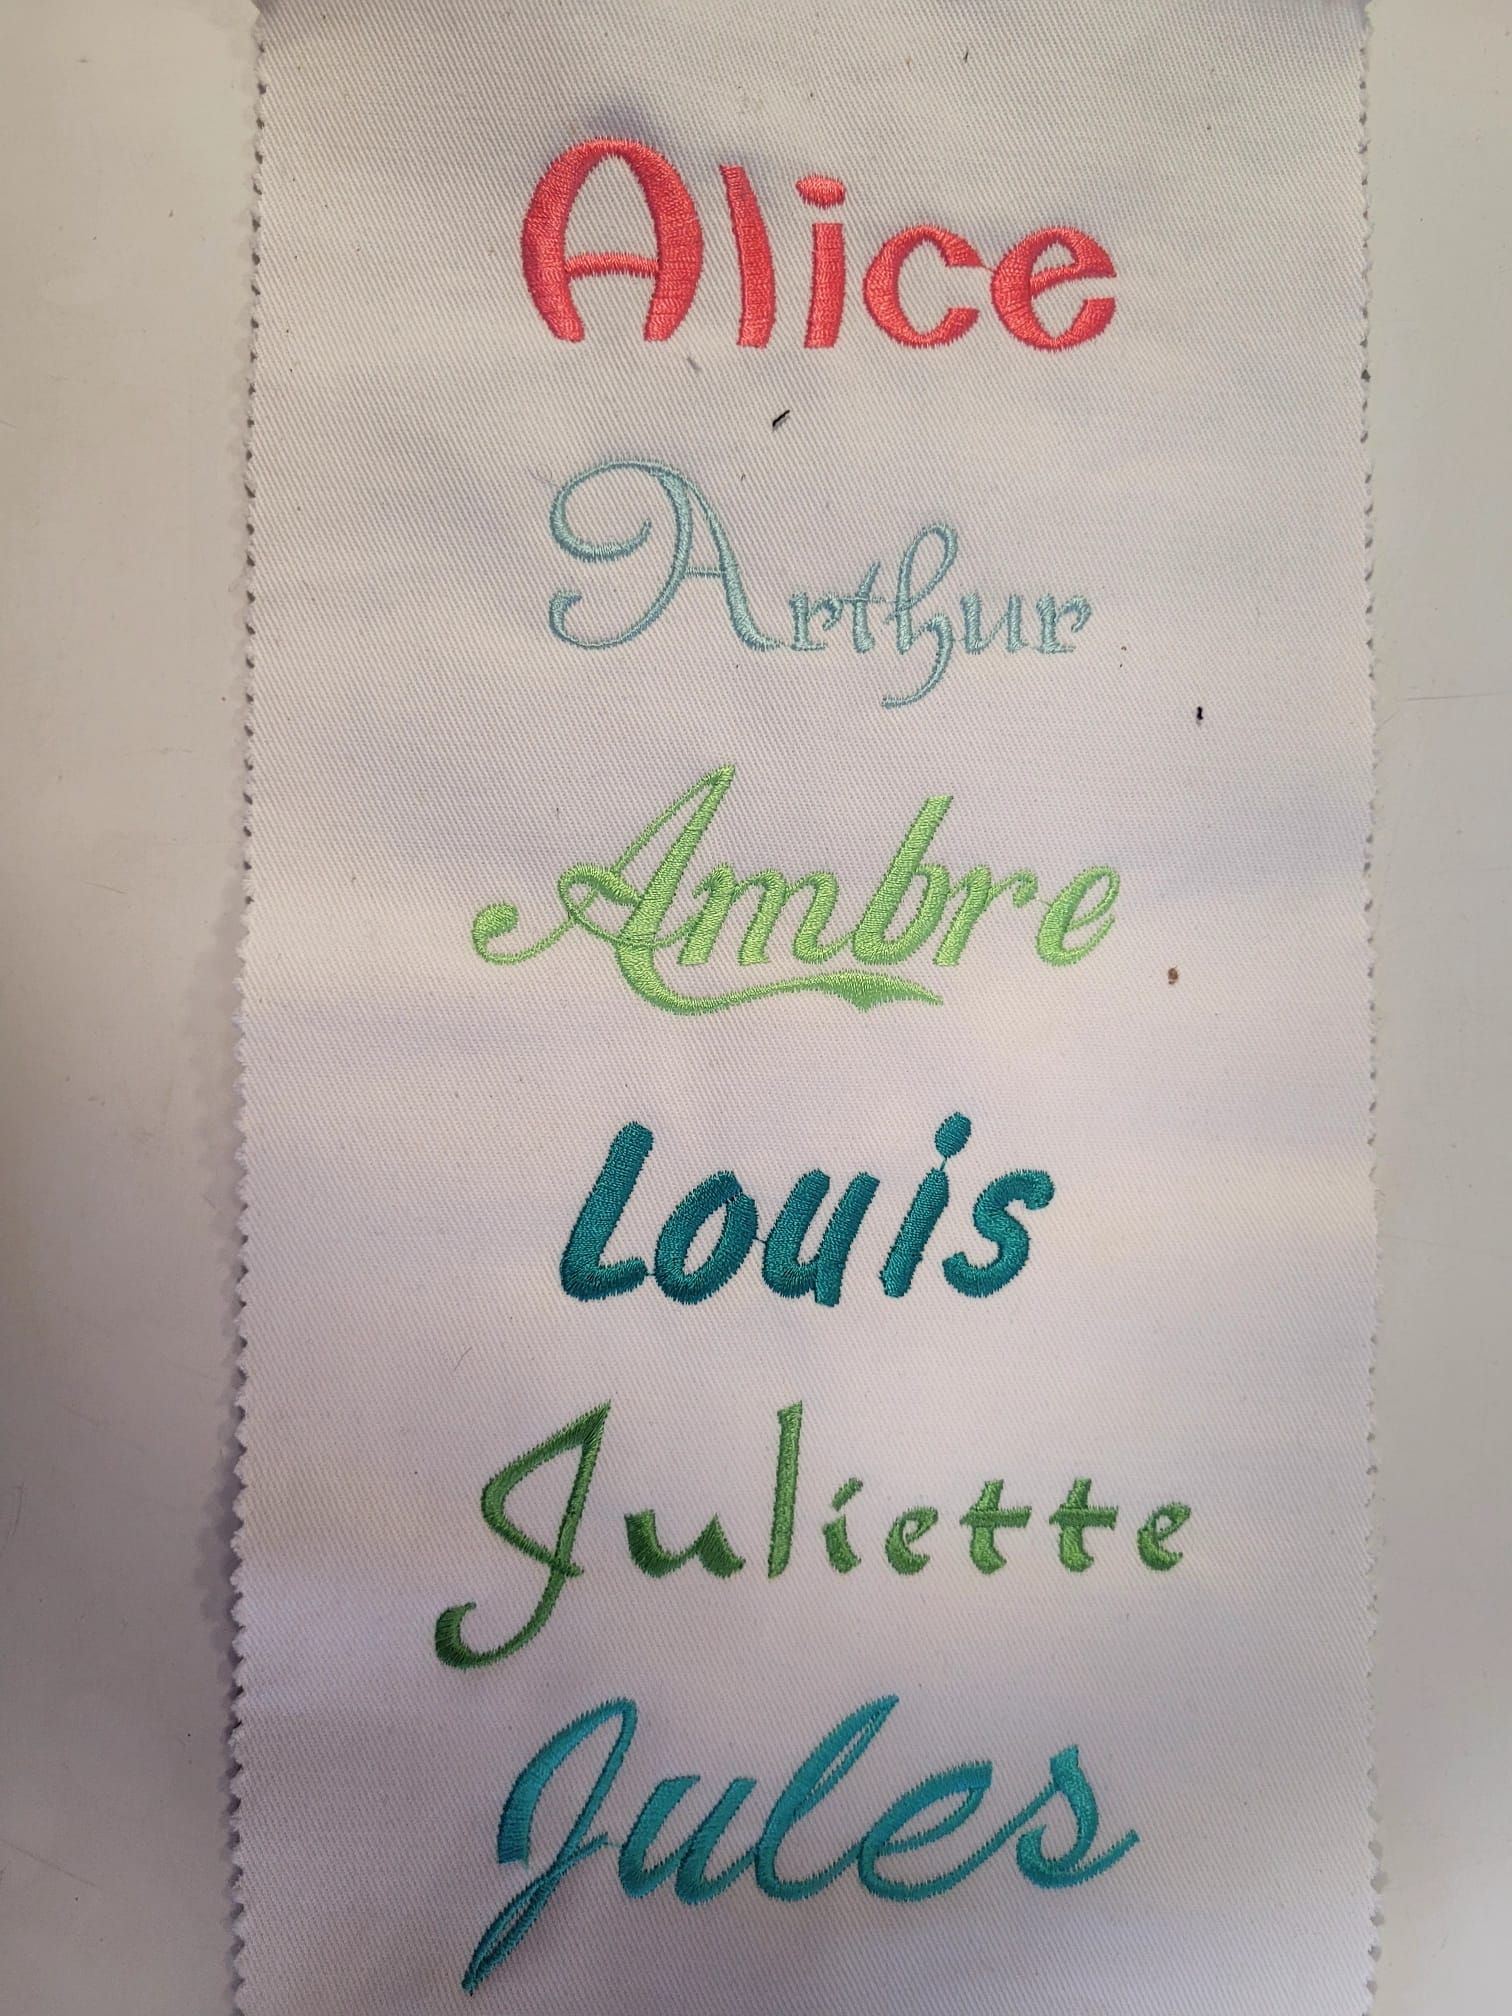 Alice
Arthur
Ambre
Louis
Juliette
Jules